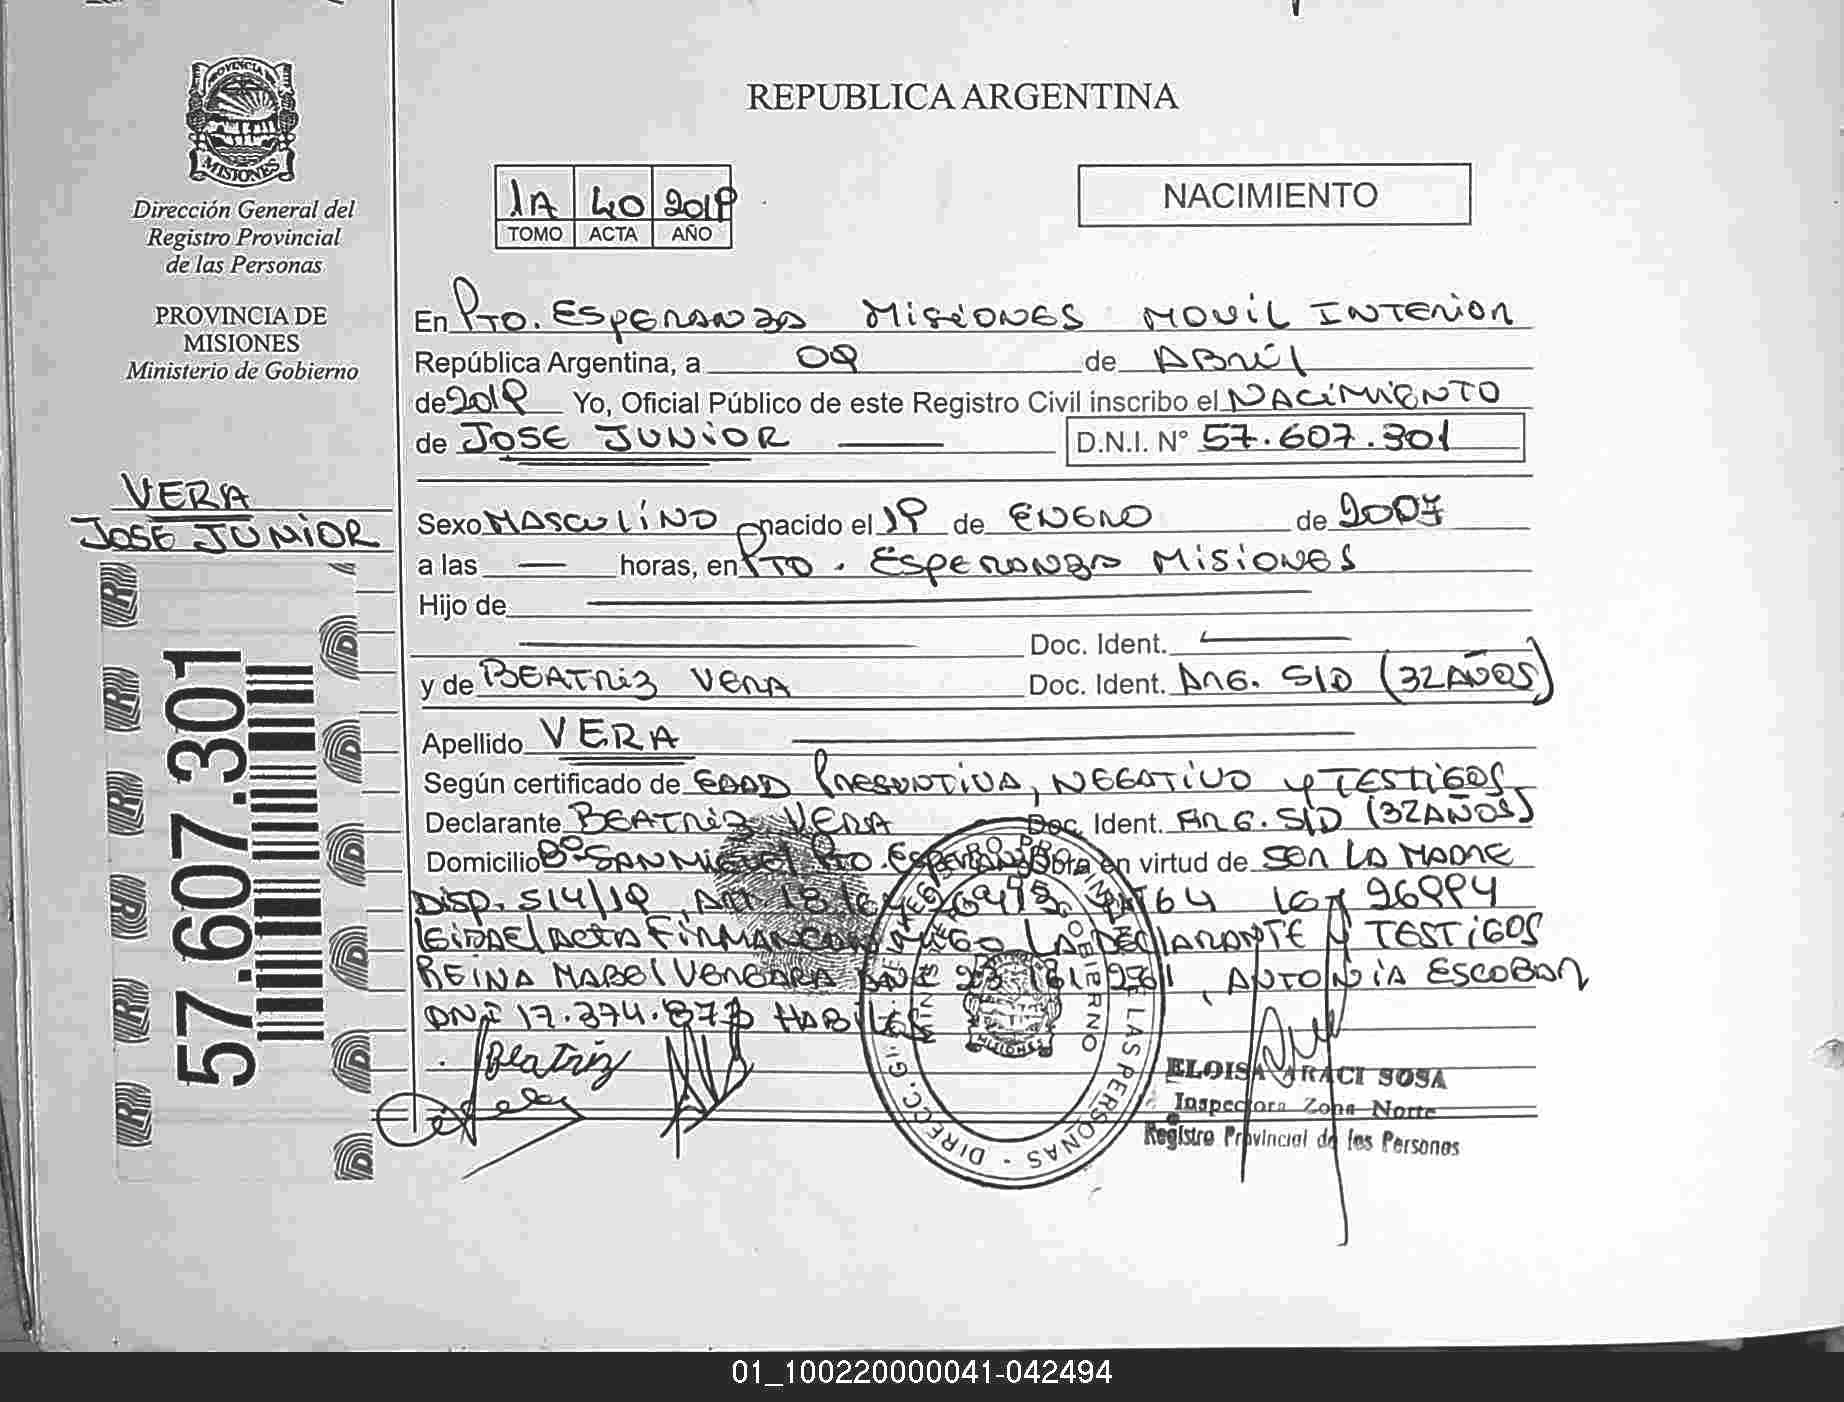 PROVINCIA DE
MISIONES
Dirección General del
Registro Provincial
de las Personas
PROVINCIA DE
MISIONES
Ministerio de Gobierno
VERA
JOSE JUNIOR
57.607.301
REPUBLICA ARGENTINA
1A 40 2019
TOMO ACTA AÑO
NACIMIENTO
En Pto. Esperanza Misiones Movil Interior
República Argentina, a 09 de Abril
de 2019 Yo, Oficial Público de este Registro Civil inscribo el Nacimiento
de JOSE JUNIOR D.N.I. N° 57.607.301
Sexo Masculino nacido el 19 de Enero de 2007
a las — horas, en Pto. Esperanza Misiones
Hijo de
Doc. Ident.
y de Beatriz Vera Doc. Ident. Arg. S/D (32 años)
Apellido VERA
Según certificado de Edad Presuntiva, Negativo y Testigos
Declarante Beatriz Vera Doc. Ident. Arg. S/D (32 años)
Domicilio B° San Miguel Pto. Esperanza Obra en virtud de ser la madre
Disp. 514/19, Art 26994
Leida el acta firman conmigo la declarante y testigos
Reina Mabel Vergara, Antonia Escobar
DNI 17.374.873 Habiles
Beatriz
ELOISA ARACI SOSA
Inspectora Zona Norte
Registro Provincial de las Personas
01_100220000041-042494